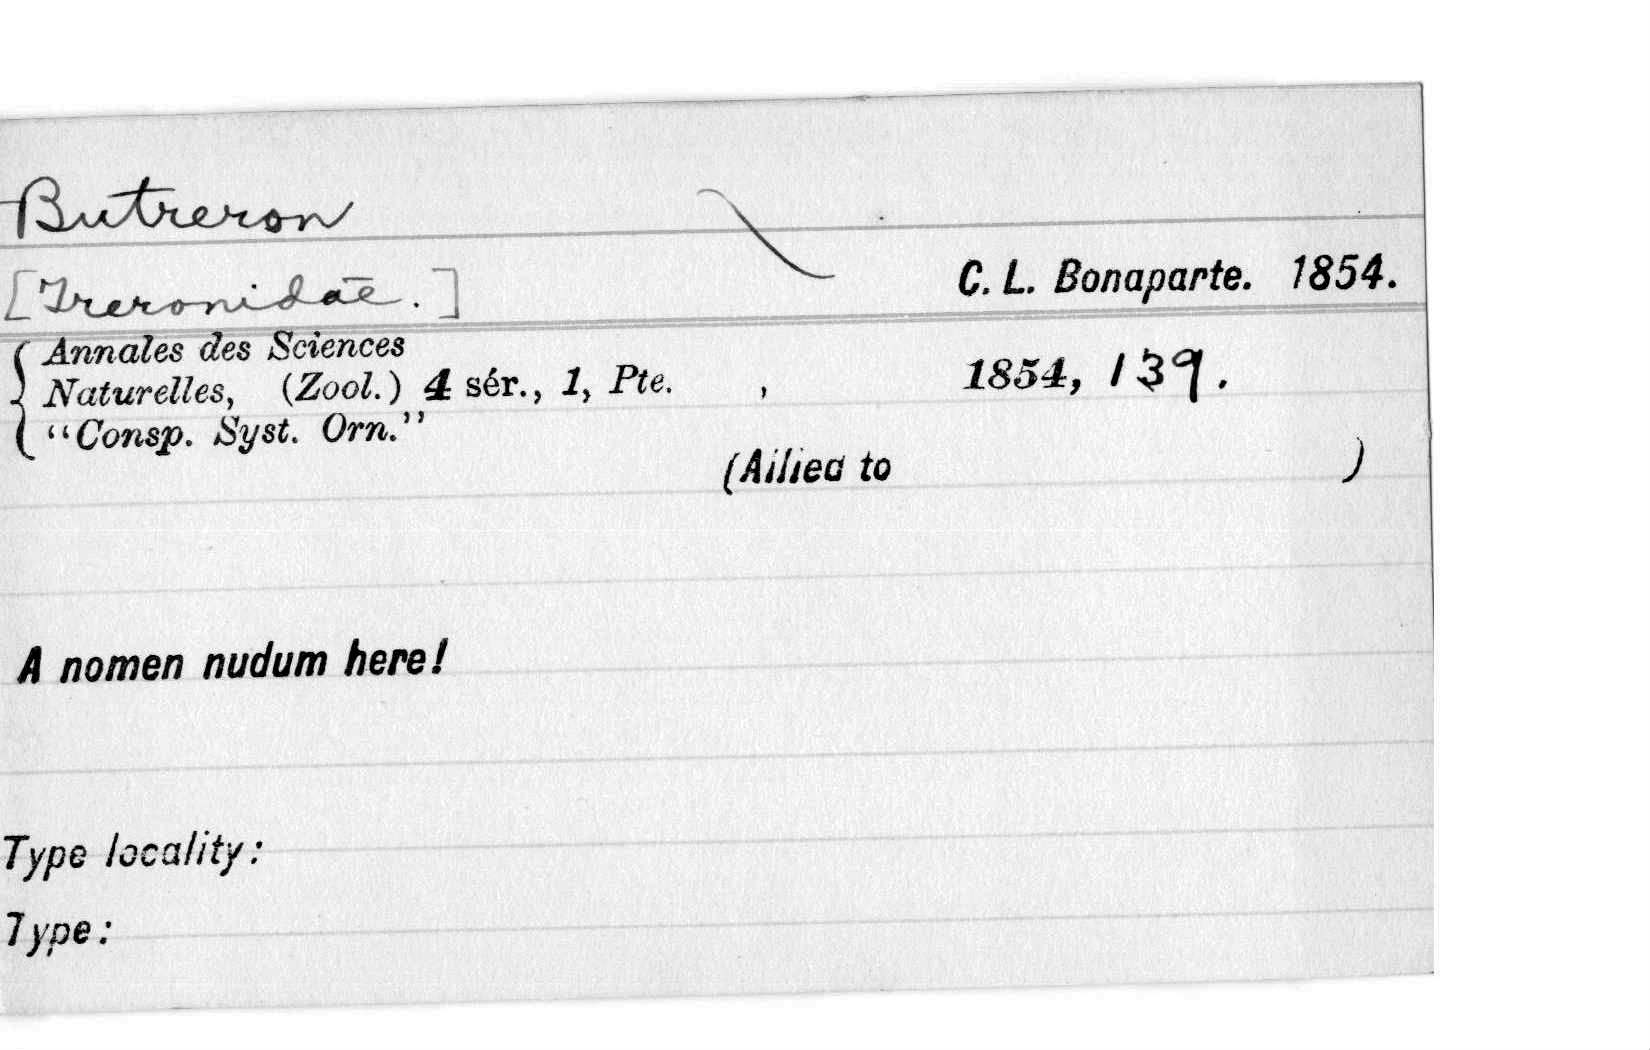 Butreron
[Treronidae.]
C. L. Bonaparte. 1854.
Annales des Sciences
Naturelles, (Zool.) 4 sér., 1, Pte. , 1854, 139.
"Consp. Syst. Orn."
(Allied to )
A nomen nudum here!
Type locality:
Type: